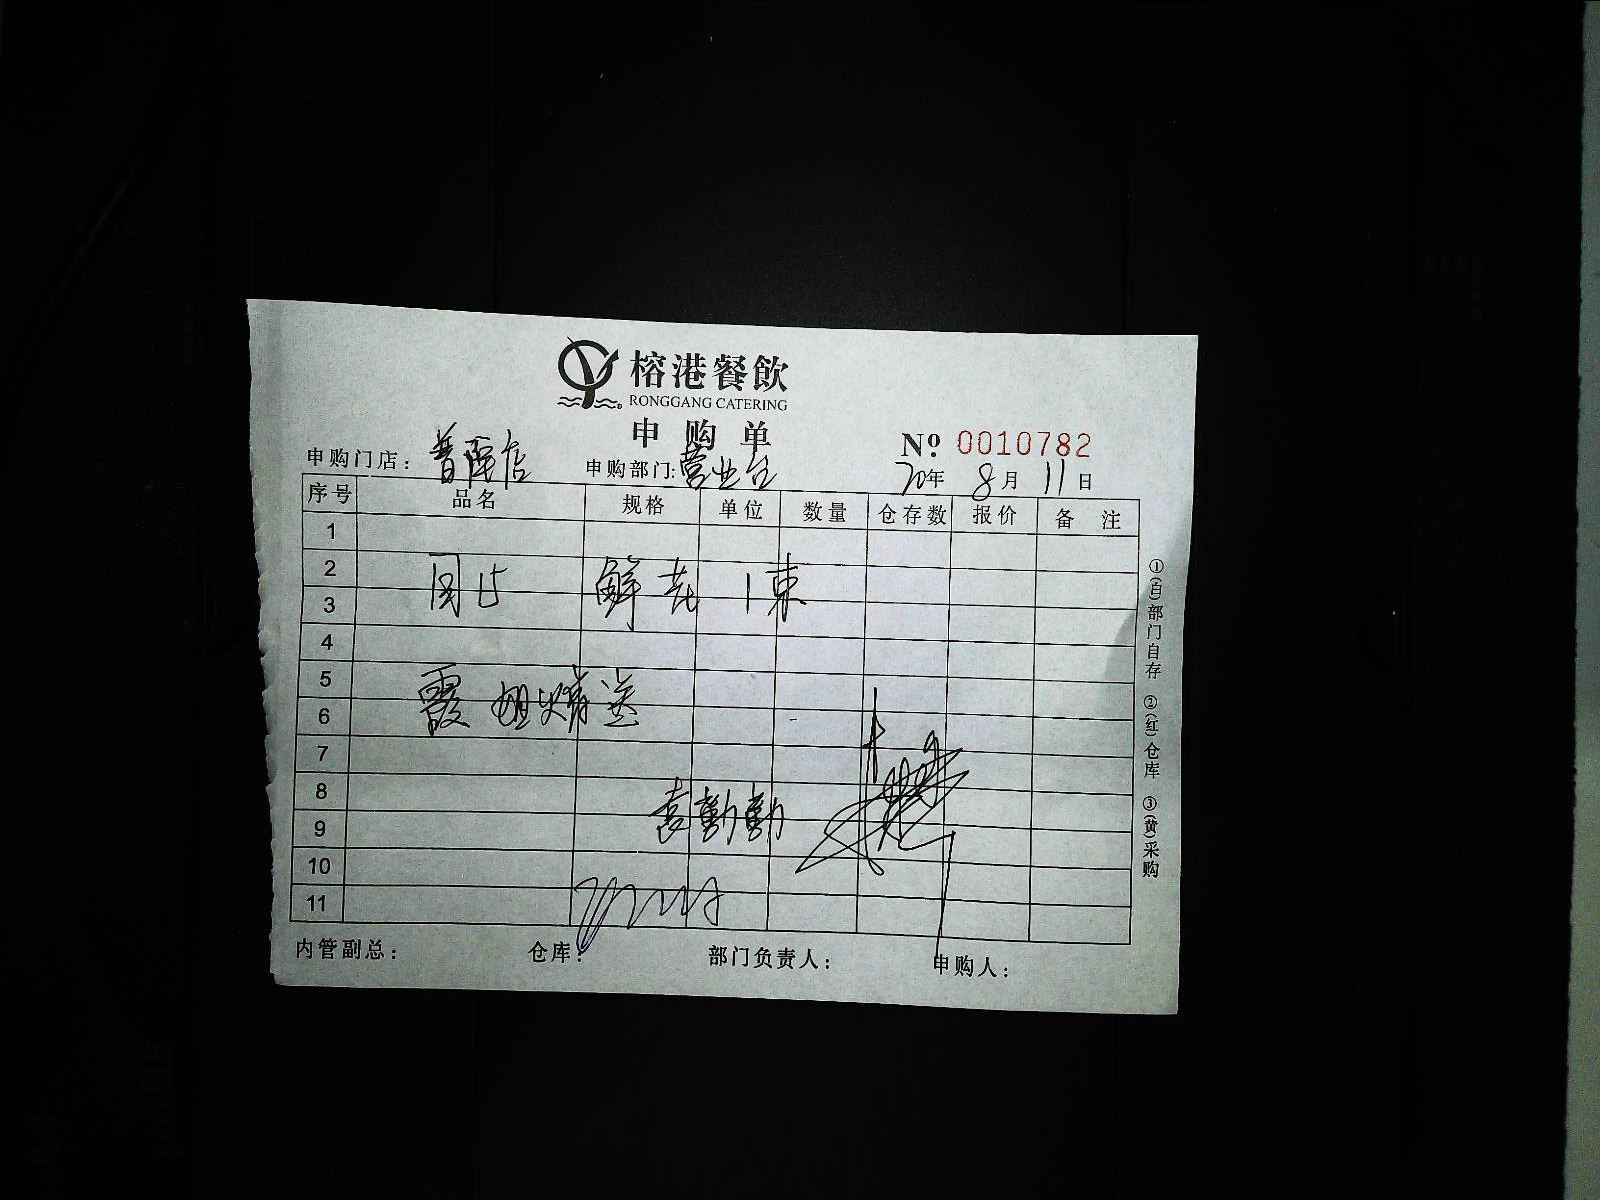 榕港餐飲
RONGGANG CATERING
申购单
№ 0010782
申购门店：普陀店 申购部门:营业台 20年 8月 11日
序号 品名 规格 单位 数量 仓存数 报价 备注
1
2
3
鲜花 1束
4
5
6
霞姐
7
8
9
勤勤
10
11
内管副总： 仓库： 部门负责人： 申购人：
①(白)部门自存 ②(红)仓库 ③(黄)采购